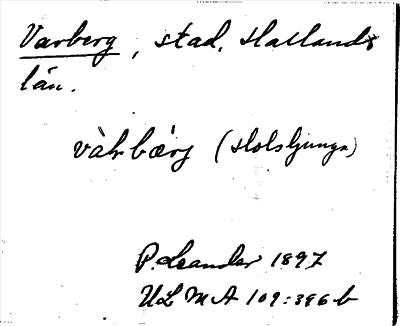 Varberg, stad, Hallands
län.
vàrbærj (Holsljunga)
P. Leander 1897
ULMA 109:386 b